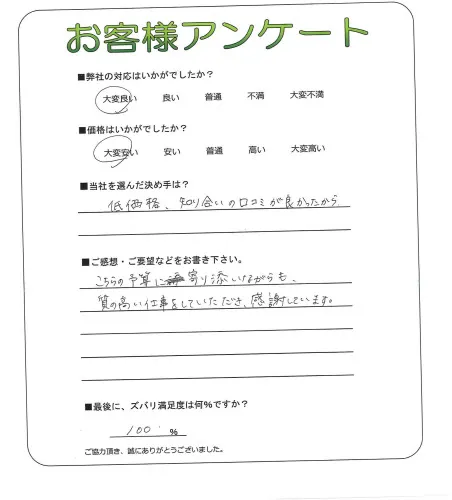 お客様アンケート
■弊社の対応はいかがでしたか？
大変良い 良い 普通 不満 大変不満
■価格はいかがでしたか？
大変安い 安い 普通 高い 大変高い
■当社を選んだ決め手は？
低価格、知り合いの口コミが良かったから
■ご感想・ご要望などをお書き下さい。
こちらの予算に寄り添いながらも、
質の高い仕事をしていただき、感謝しています。
■最後に、ズバリ満足度は何%ですか？
100 %
ご協力頂き、誠にありがとうございました。